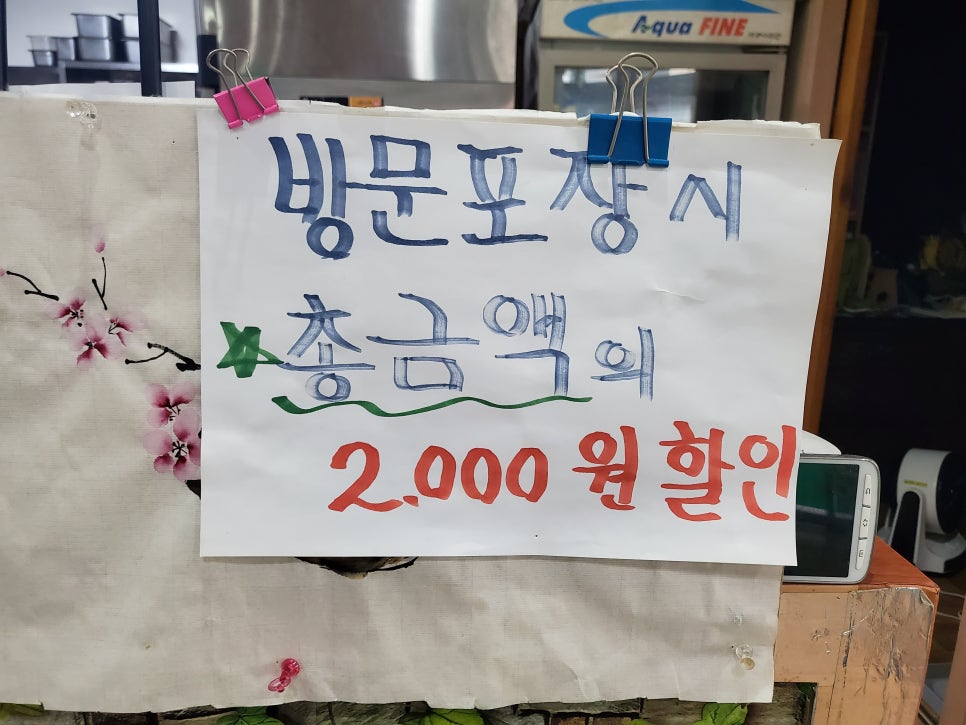 Aqua FINE
방문포장시
총금액의
2.000원할인